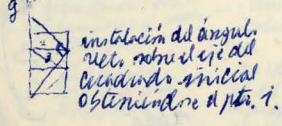 g
instalación del ángulo
rect. sobre el eje del
cuadrado inicial
obteniéndose el pto. i.